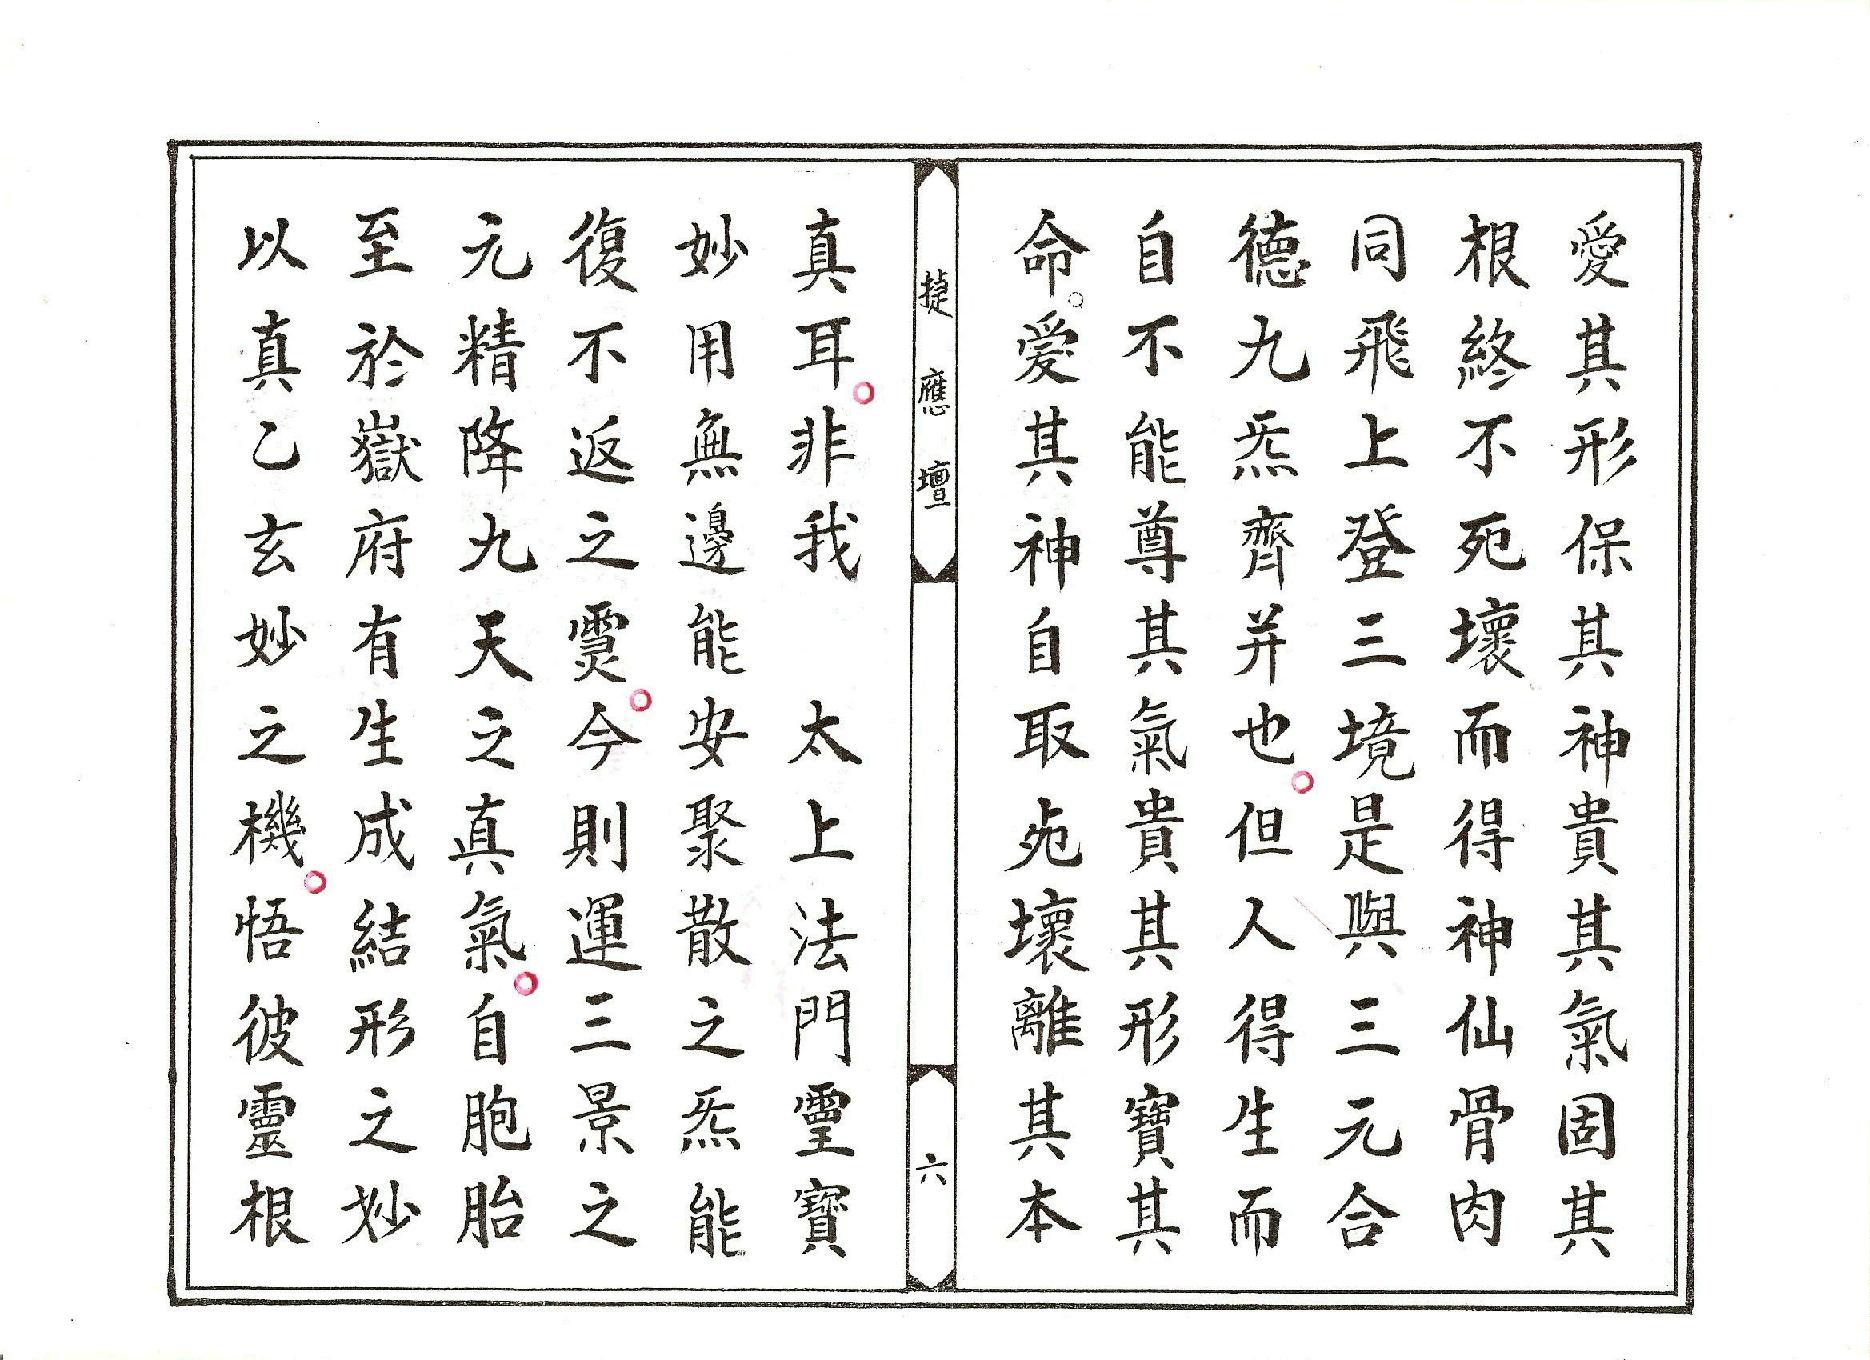 愛其形保其神貴其氣固其
根終不死壞而得神仙骨肉
同飛上登三境是與三元合
德九炁齊并也。但人得生而
自不能尊其氣貴其形寶其
命。愛其神自取死壞離其本
捷應壇
六
真耳。非我　太上法門靈寶
妙用無邊能安聚散之炁能
復不返之靈。今則運三景之
元精降九天之真氣。自胞胎
至於嶽府有生成結形之妙
以真乙玄妙之機。悟彼靈根